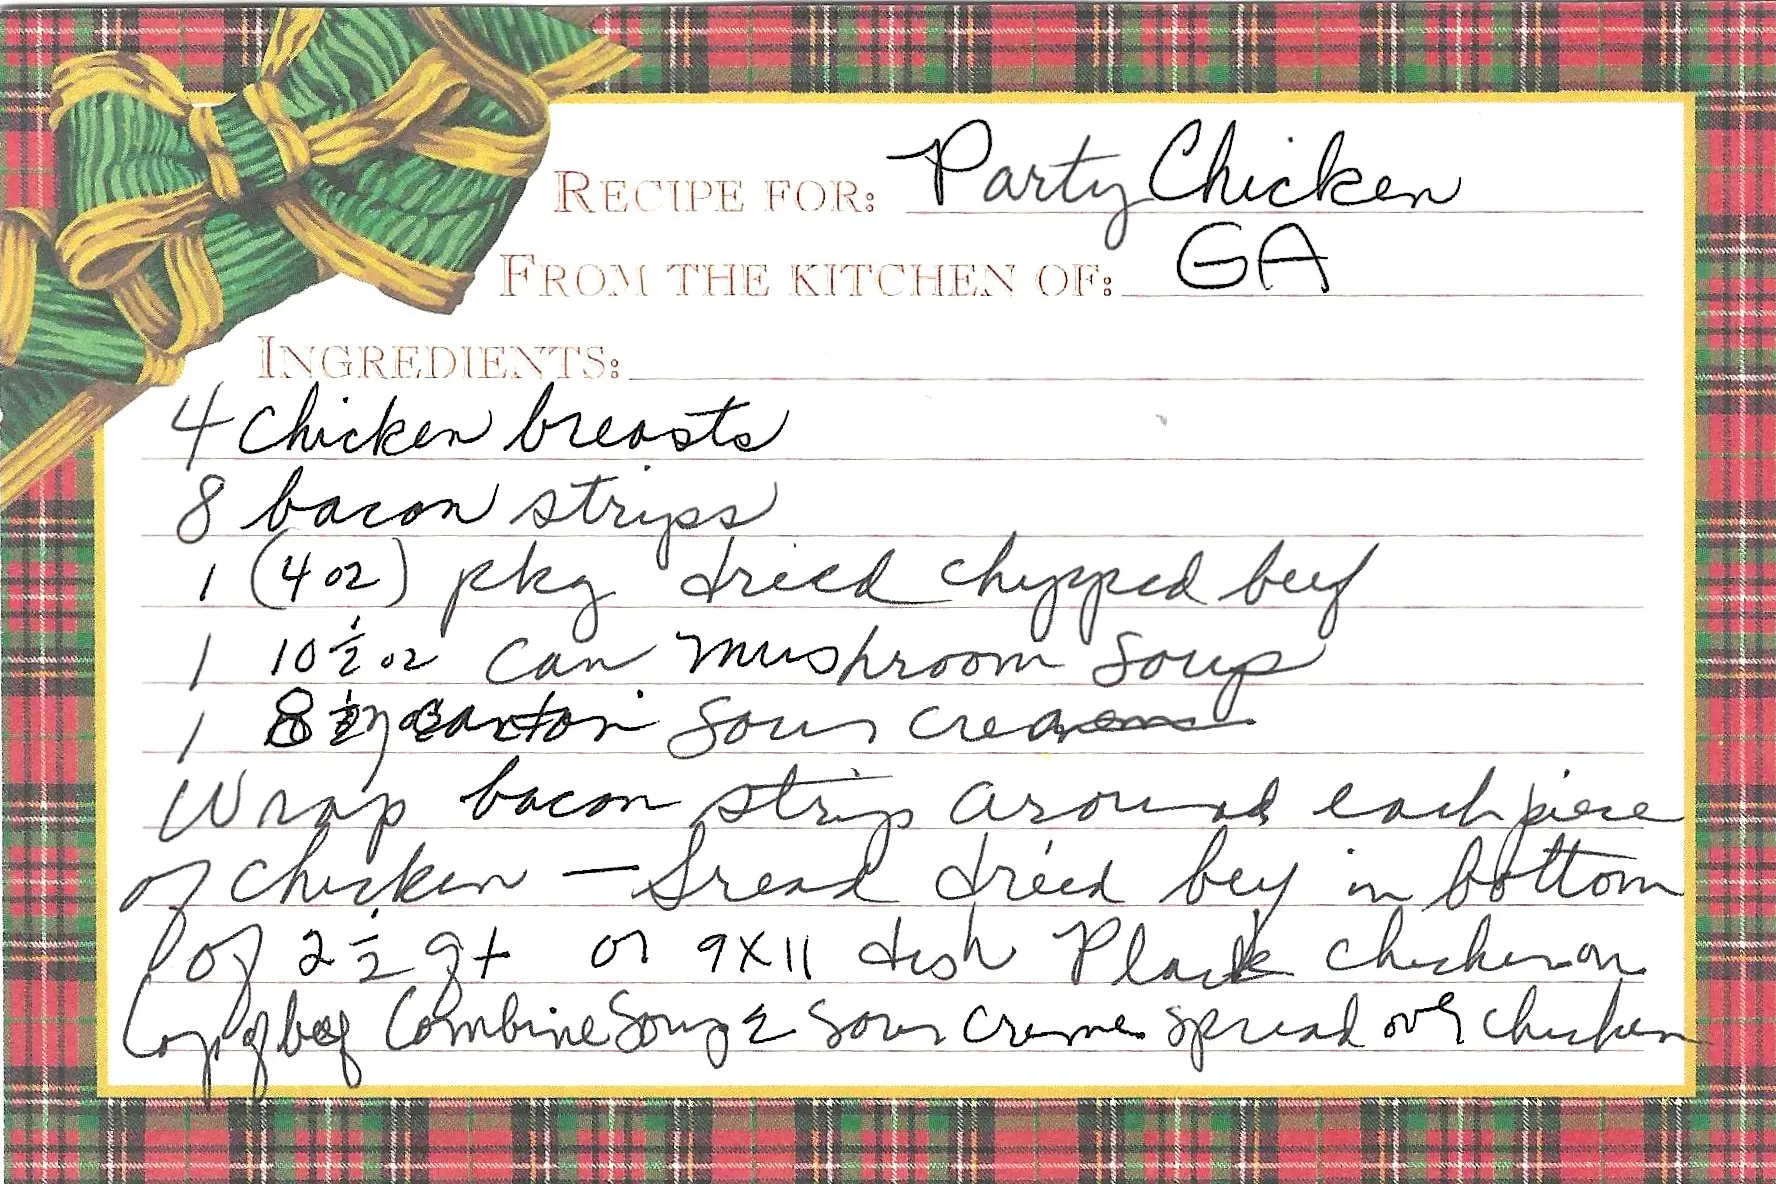 RECIPE FOR: Party Chicken
FROM THE KITCHEN OF: GA
INGREDIENTS:
4 chicken breasts
8 bacon strips
1 (4 oz) pkg dried chipped beef
1 10 1/2 oz can mushroom soup
1 8 1/2 oz carton sour cream
Wrap bacon strip around each piece
of chicken — Sread dried beef in bottom
of 2 1/2 qt or 9X11 dish Place chicken on
top of beef Combine Soup & Sour creme spread over chicken